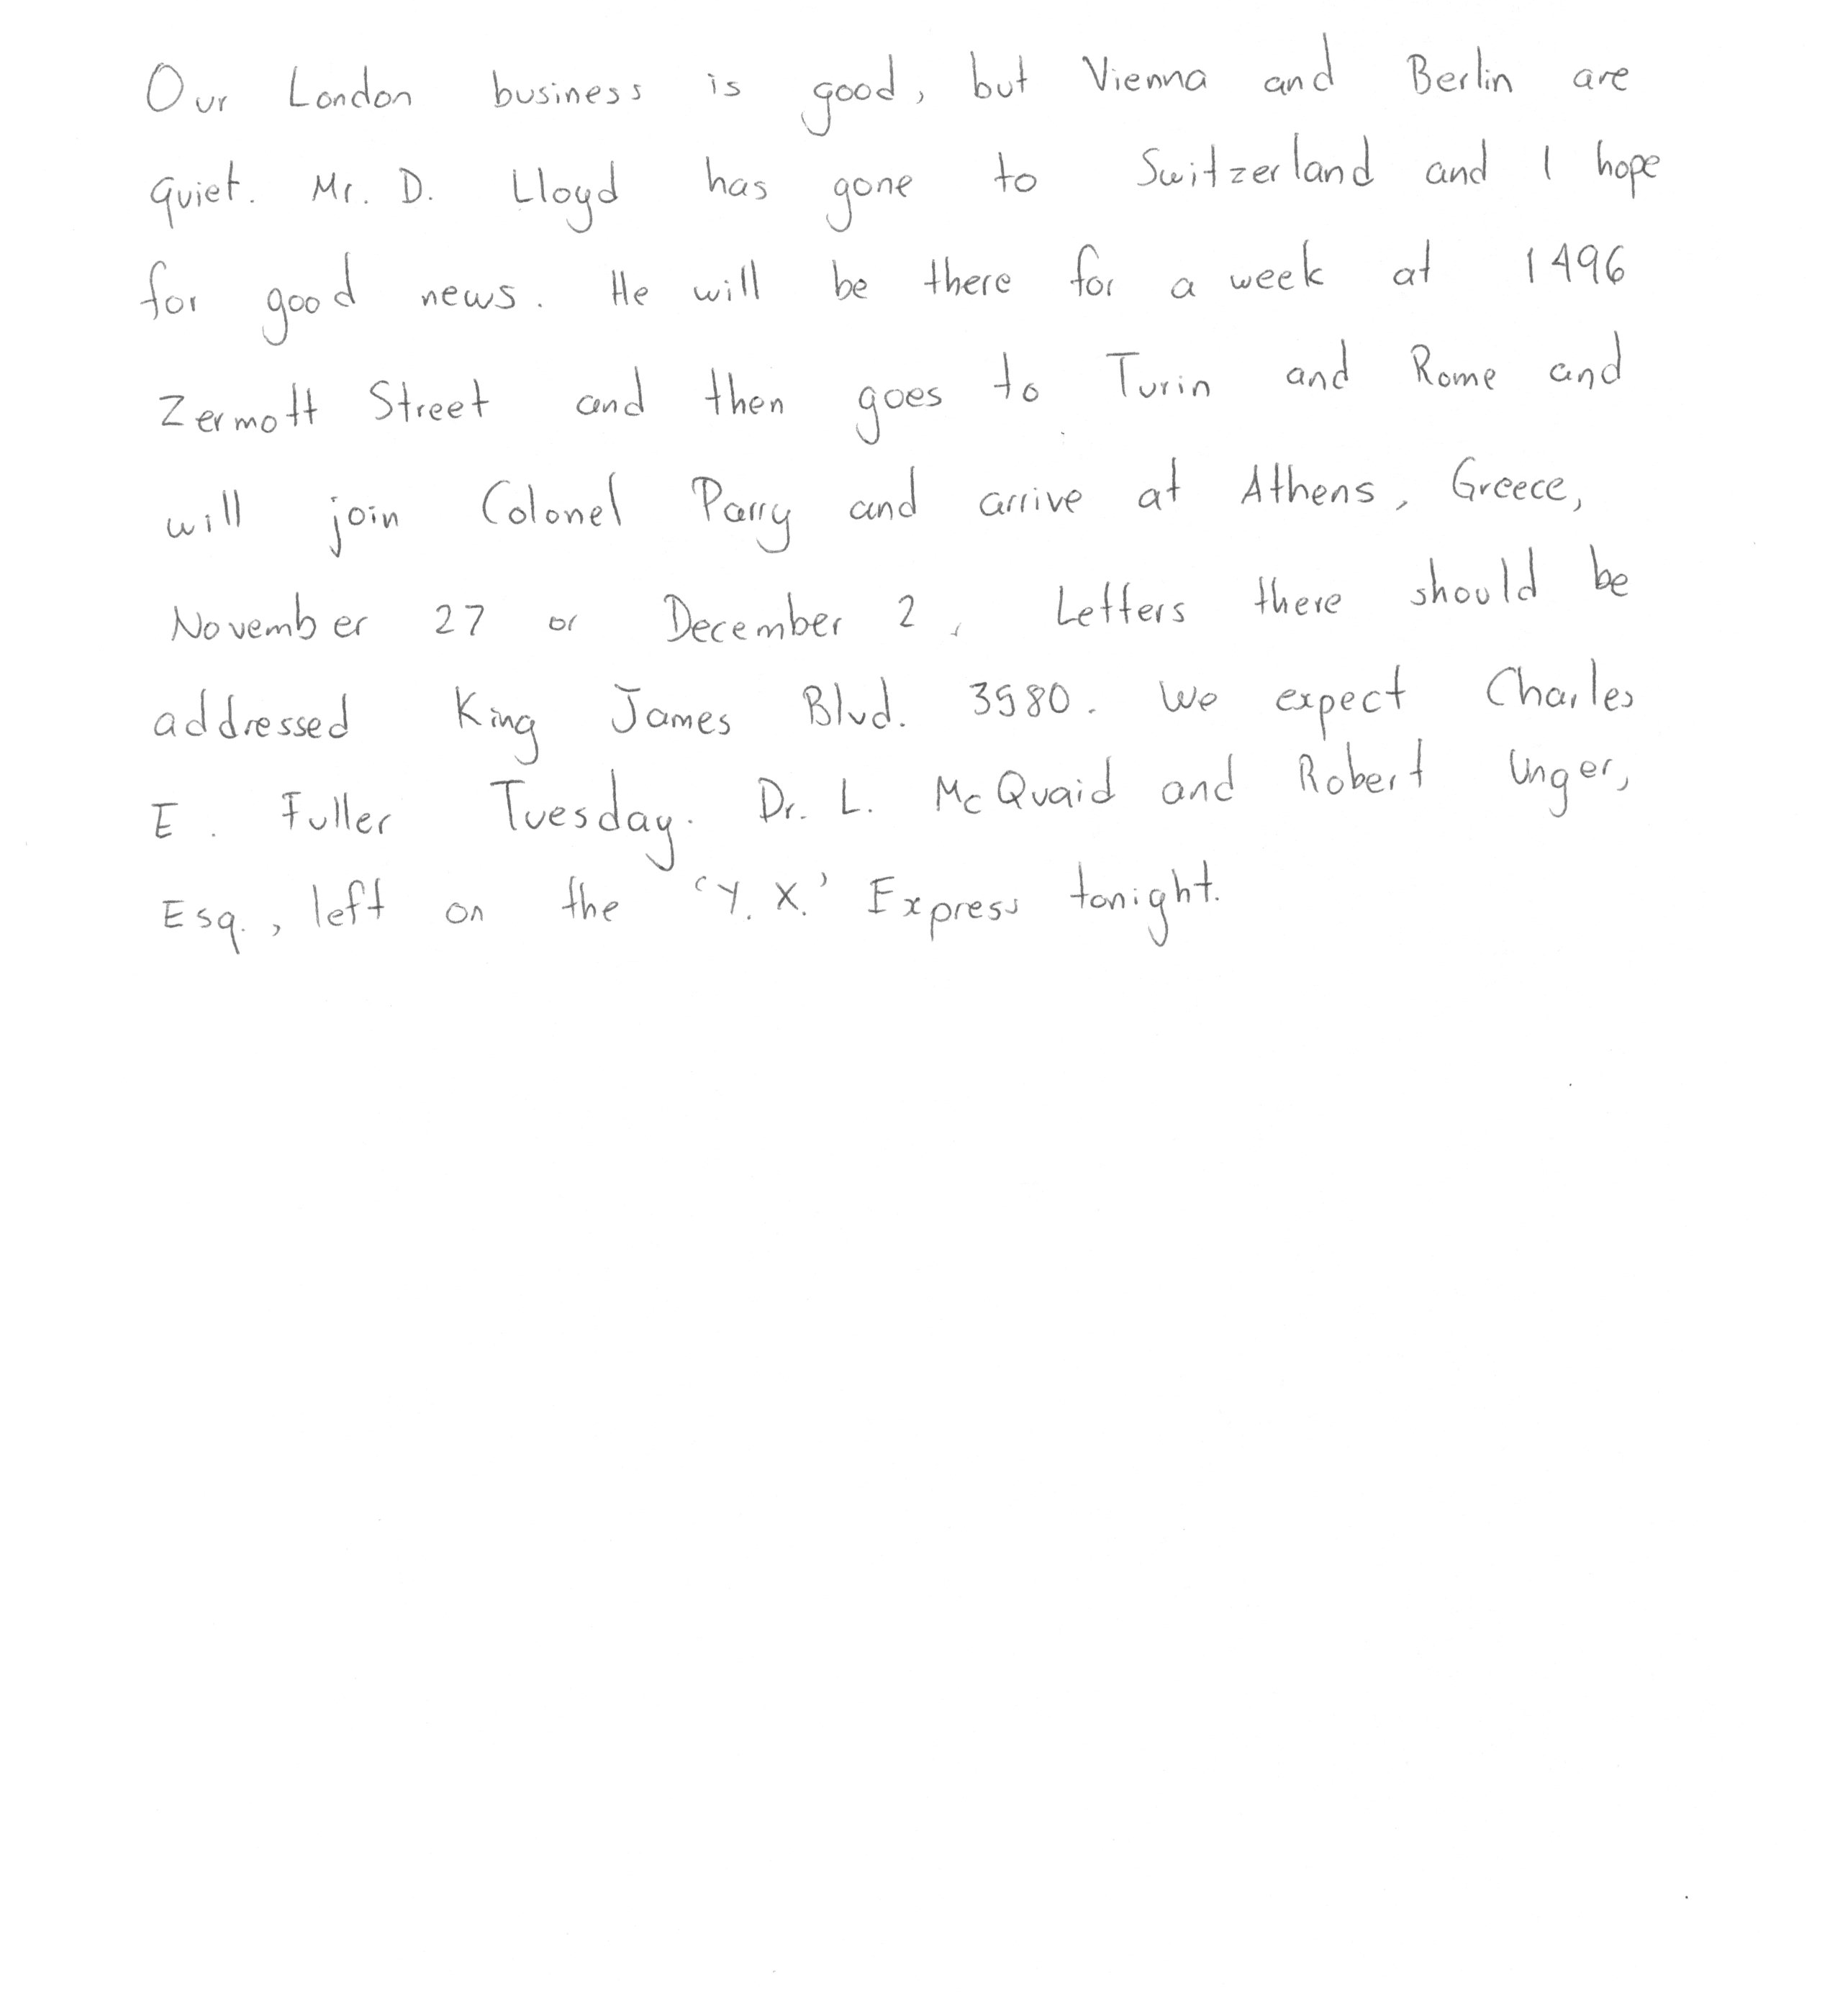 Our London business is good, but Vienna and Berlin are
quiet. Mr. D. Lloyd has gone to Switzerland and I hope
for good news. He will be there for a week at 1496
Zermott Street and then goes to Turin and Rome and
will join Colonel Parry and arrive at Athens, Greece,
November 27 or December 2. Letters there should be
addressed King James Blvd. 3580. We expect Charles
E. Fuller Tuesday. Dr. L. McQuaid and Robert Unger,
Esq., left on the 'Y. X.' Express tonight.